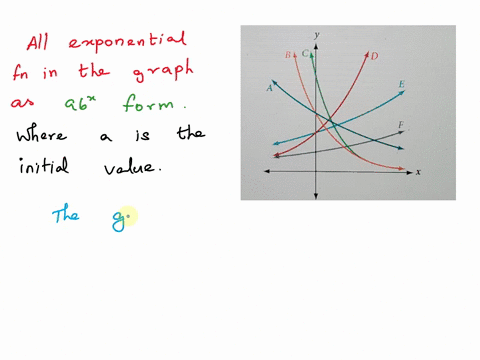 All exponential
fn in the graph
as ab^x form.
Where a is the
initial value.
The g
y
B C D
A E
F
x